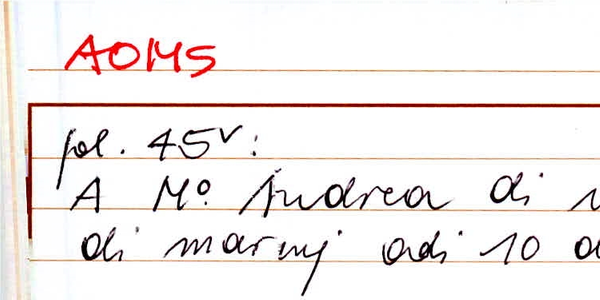 AOMS
fol. 45v:
A Mº Andrea di
di marmj adi 10